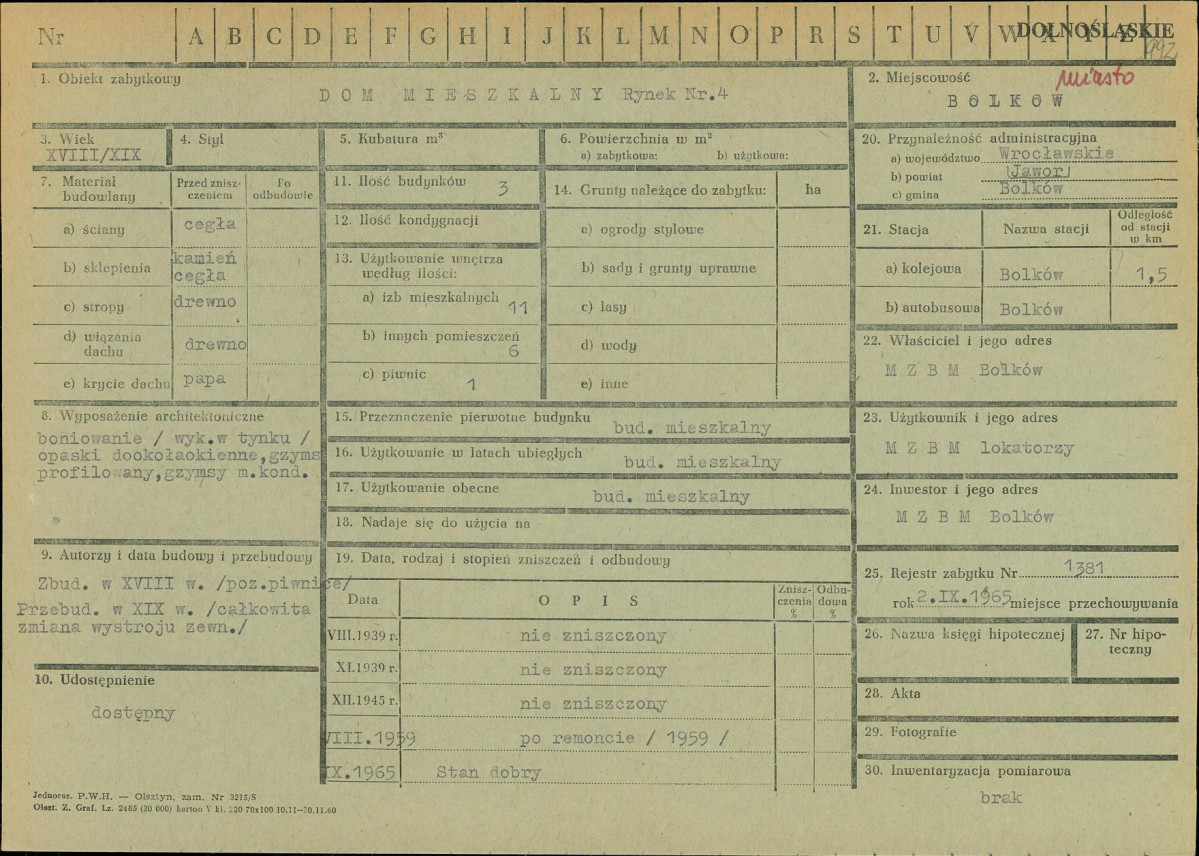 Nr A B C D E F G H I J K L M N O P R S T U V W X Y Z
DOLNOŚLĄSKIE
992
1. Obiekt zabytkowy
DOM MIESZKALNY Rynek Nr.4
2. Miejscowość
miasto
BOLKÓW
3. Wiek
XVIII/XIX
4. Styl
5. Kubatura m³
6. Powierzchnia w m²
a) zabytkowa: b) użytkowa:
20. Przynależność administracyjna
a) województwo Wrocławskie
b) powiat Jawor
c) gmina Bolków
7. Materiał budowlany
Przed zniszczeniem
Po odbudowie
a) ściany cegła
b) sklepienia kamień
cegła
c) stropy drewno
d) wiązania dachu drewno
e) krycie dachu papa
11. Ilość budynków 3
12. Ilość kondygnacji
13. Użytkowanie wnętrza
według ilości:
a) izb mieszkalnych 11
b) innych pomieszczeń 6
c) piwnic 1
14. Grunty należące do zabytku: ha
a) ogrody stylowe
b) sady i grunty uprawne
c) lasy
d) wody
e) inne
21. Stacja Nazwa stacji Odległość
od stacji
w km
a) kolejowa Bolków 1,5
b) autobusowa Bolków
22. Właściciel i jego adres
M Z B M Bolków
8. Wyposażenie architektoniczne
boniowanie / wyk.w tynku /
opaski dookołaokienne,gzyms
profilowany,gzymsy m.kond.
15. Przeznaczenie pierwotne budynku
bud. mieszkalny
16. Użytkowanie w latach ubiegłych
bud. mieszkalny
17. Użytkowanie obecne
bud. mieszkalny
18. Nadaje się do użycia na
23. Użytkownik i jego adres
M Z B M lokatorzy
24. Inwestor i jego adres
M Z B M Bolków
9. Autorzy i data budowy i przebudowy
Zbud. w XVIII w. /poz.piwnice/
Przebud. w XIX w. /całkowita
zmiana wystroju zewn./
10. Udostępnienie
dostępny
19. Data, rodzaj i stopień zniszczeń i odbudowy
Data O P I S Zniszczenia % Odbudowa %
VIII.1939 r. nie zniszczony
XI.1939 r. nie zniszczony
XII.1945 r. nie zniszczony
VIII.1959 po remoncie / 1959 /
IX.1965 Stan dobry
25. Rejestr zabytku Nr 1381
rok 2.IX.1965 miejsce przechowywania
26. Nazwa księgi hipotecznej
27. Nr hipoteczny
28. Akta
29. Fotografie
30. Inwentaryzacja pomiarowa
brak
Jednoraz. P.W.H. — Olsztyn, zam. Nr 3215/S
Olszt. Z. Graf. Lz. 2485 (20 000) karton V kl. 220 70x100 10.11—30.11.60